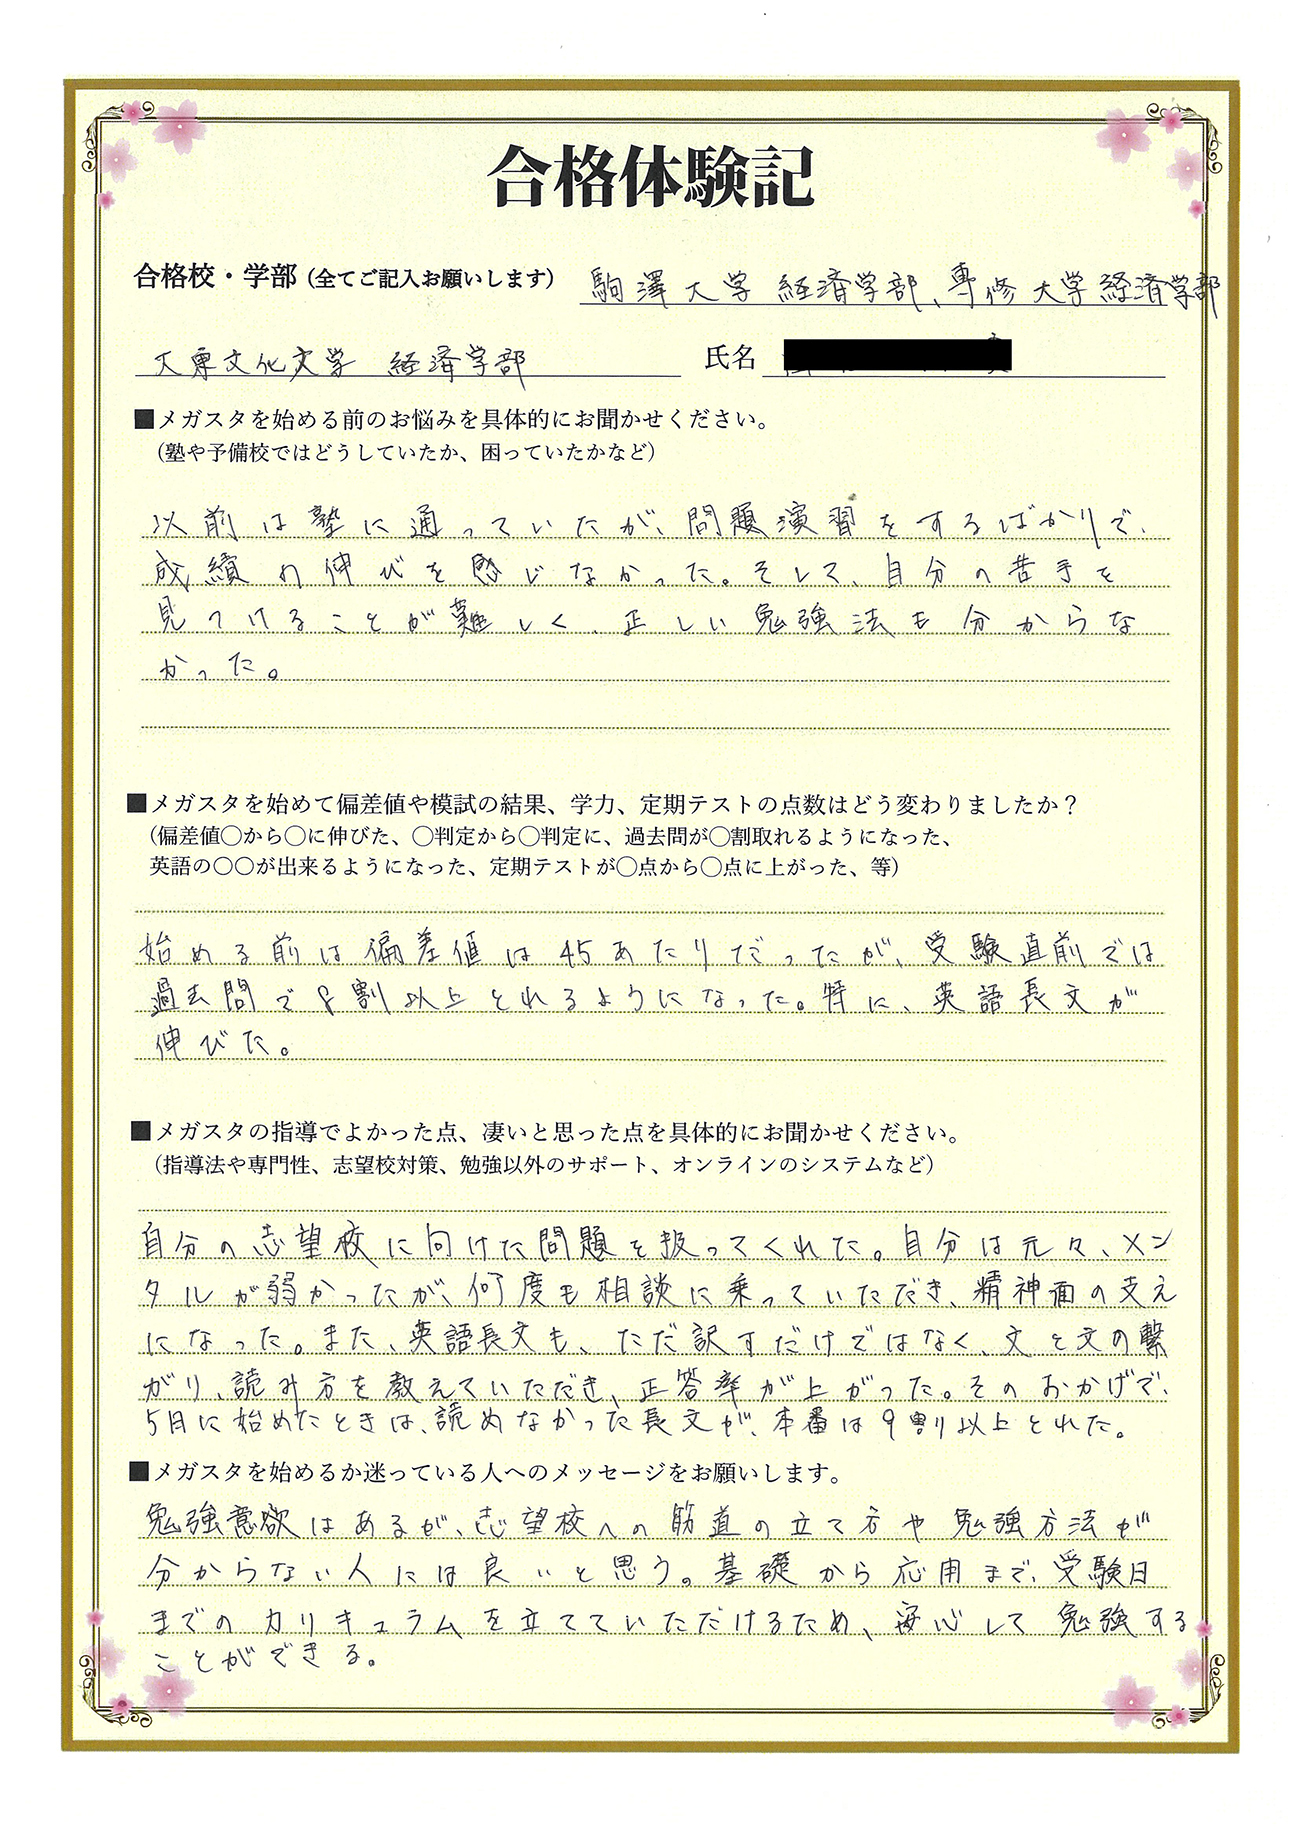 合格体験記
合格校・学部（全てご記入お願いします） 駒澤大学 経済学部、専修大学経済学部
大東文化大学 経済学部 氏名
■メガスタを始める前のお悩みを具体的にお聞かせください。
（塾や予備校ではどうしていたか、困っていたかなど）
以前は塾に通っていたが、問題演習をするばかりで、
成績の伸びを感じなかった。そして、自分の苦手を
見つけることが難しく、正しい勉強法も分からな
かった。
■メガスタを始めて偏差値や模試の結果、学力、定期テストの点数はどう変わりましたか？
（偏差値〇から〇に伸びた、〇判定から〇判定に、過去問が〇割取れるようになった、
英語の〇〇が出来るようになった、定期テストが〇点から〇点に上がった、等）
始める前は偏差値は45あたりだったが、受験直前では
過去問で8割以上とれるようになった。特に、英語長文が
伸びた。
■メガスタの指導でよかった点、凄いと思った点を具体的にお聞かせください。
（指導法や専門性、志望校対策、勉強以外のサポート、オンラインのシステムなど）
自分の志望校に向けた問題を扱ってくれた。自分は元々、メン
タルが弱かったが、何度も相談に乗っていただき、精神面の支え
になった。また、英語長文も、ただ訳すだけではなく、文と文の繋
がり、読み方を教えていただき、正答率が上がった。そのおかげで、
5月に始めたときは、読めなかった長文が、本番は9割以上とれた。
■メガスタを始めるか迷っている人へのメッセージをお願いします。
勉強意欲はあるが、志望校への筋道の立て方や勉強方法が
分からない人には良いと思う。基礎から応用まで、受験日
までのカリキュラムを立てていただけるため、安心して勉強する
ことができる。